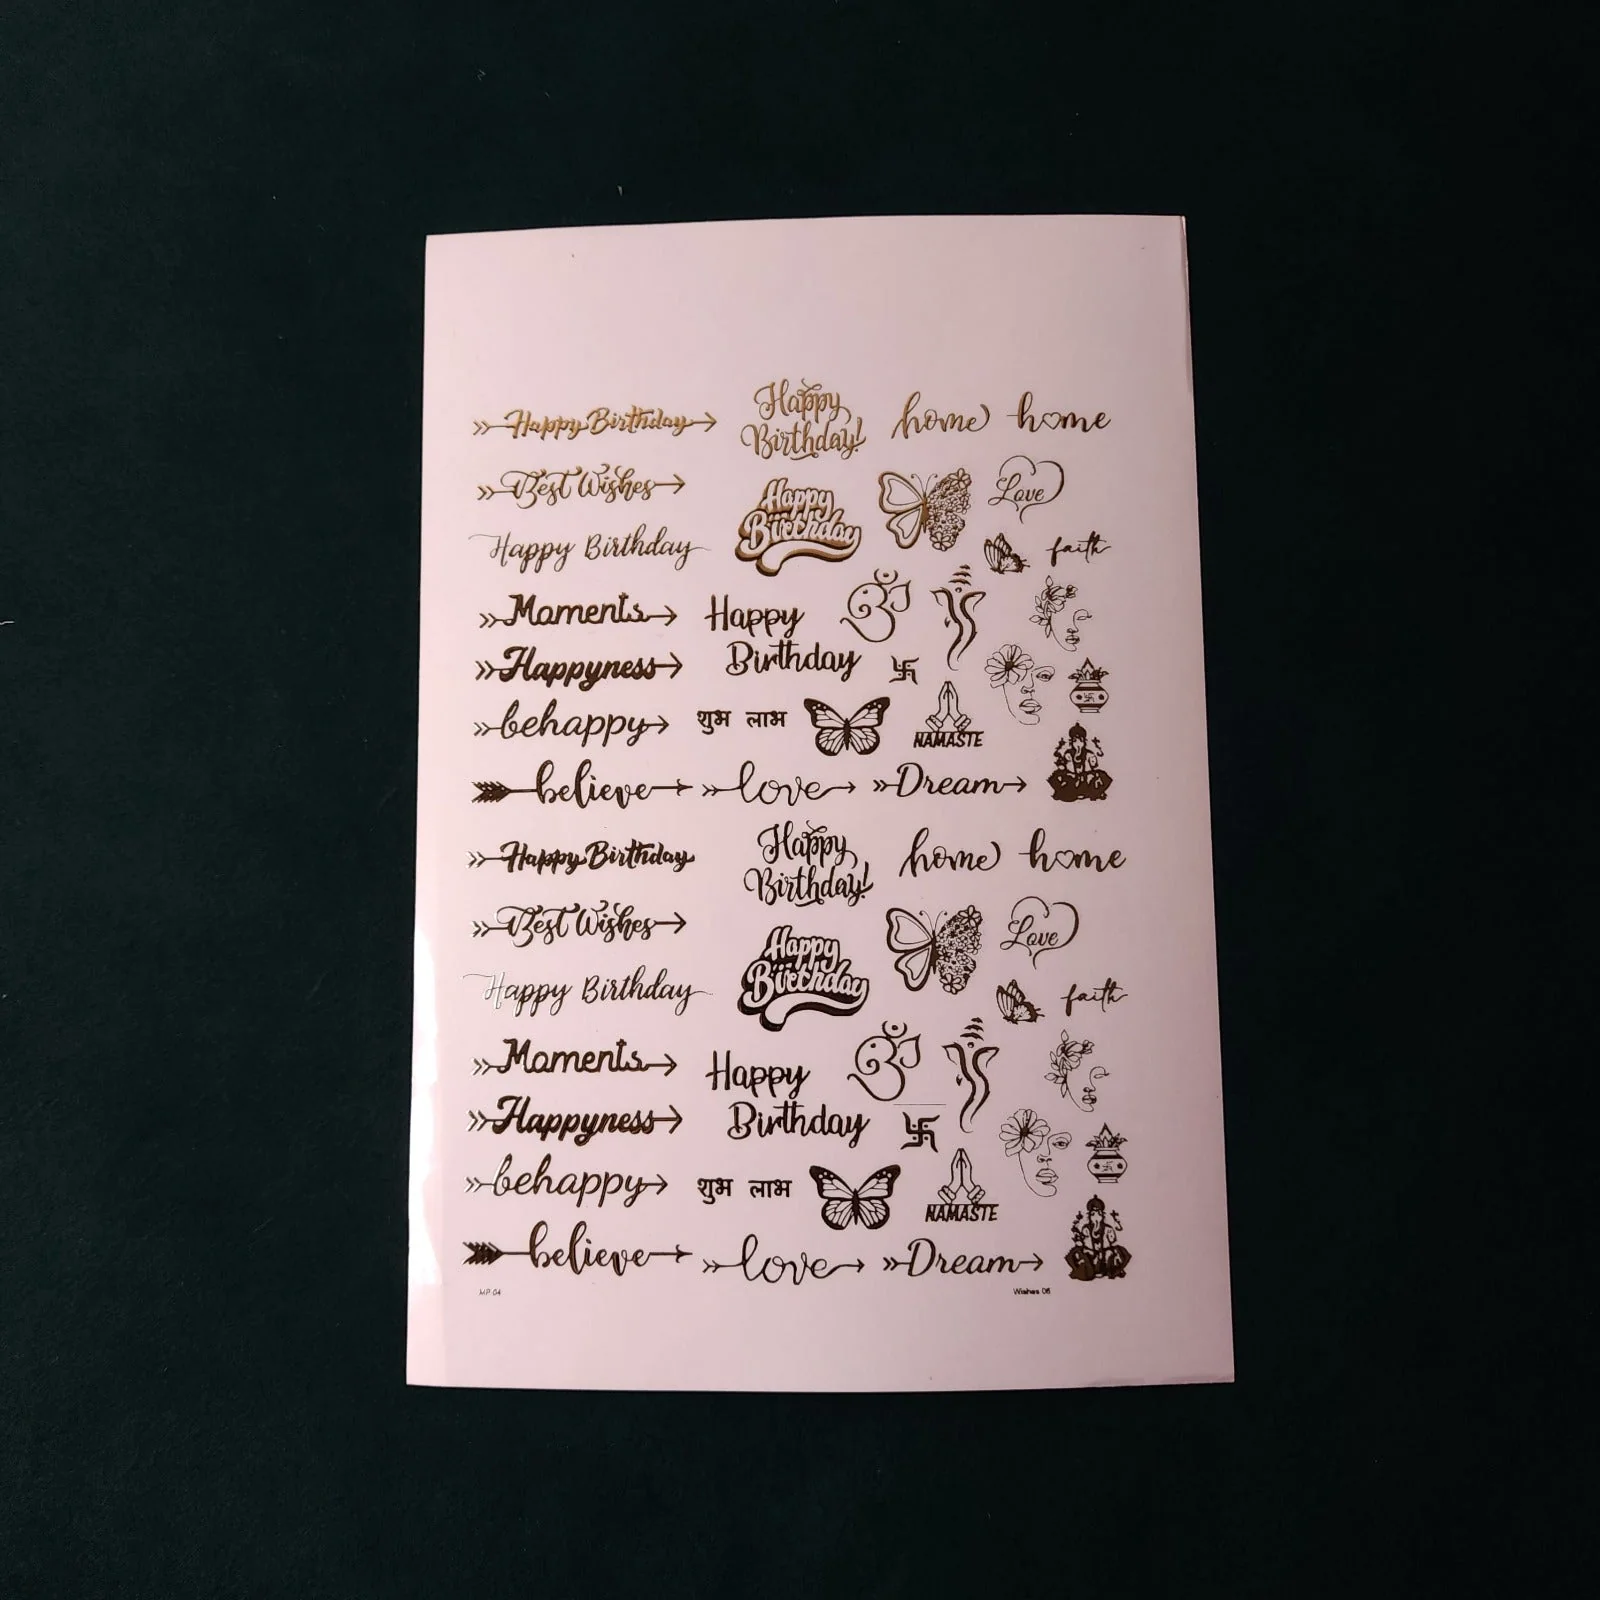 Happy Birthday
Happy
Birthday!
home
home
Best Wishes
Happy
Birthday
Love
Happy Birthday
faith
Moments
Happy
Birthday
ॐ
Happyness
behappy
शुभ लाभ
NAMASTE
believe
love
Dream
Happy Birthday
Happy
Birthday!
home
home
Best Wishes
Happy
Birthday
Love
Happy Birthday
faith
Moments
Happy
Birthday
ॐ
Happyness
behappy
शुभ लाभ
NAMASTE
believe
love
Dream
MP 04
Wishes 06